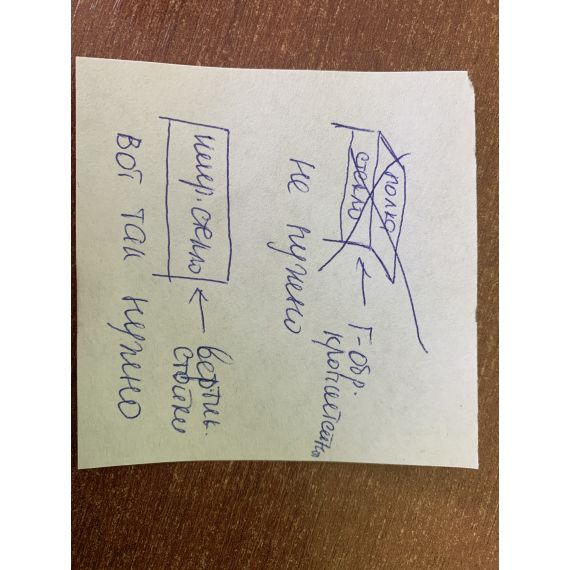 полка
стекло
Г-обр.
кронштейны
не нужно
шир. стекло
вертик.
стойки
вот так нужно